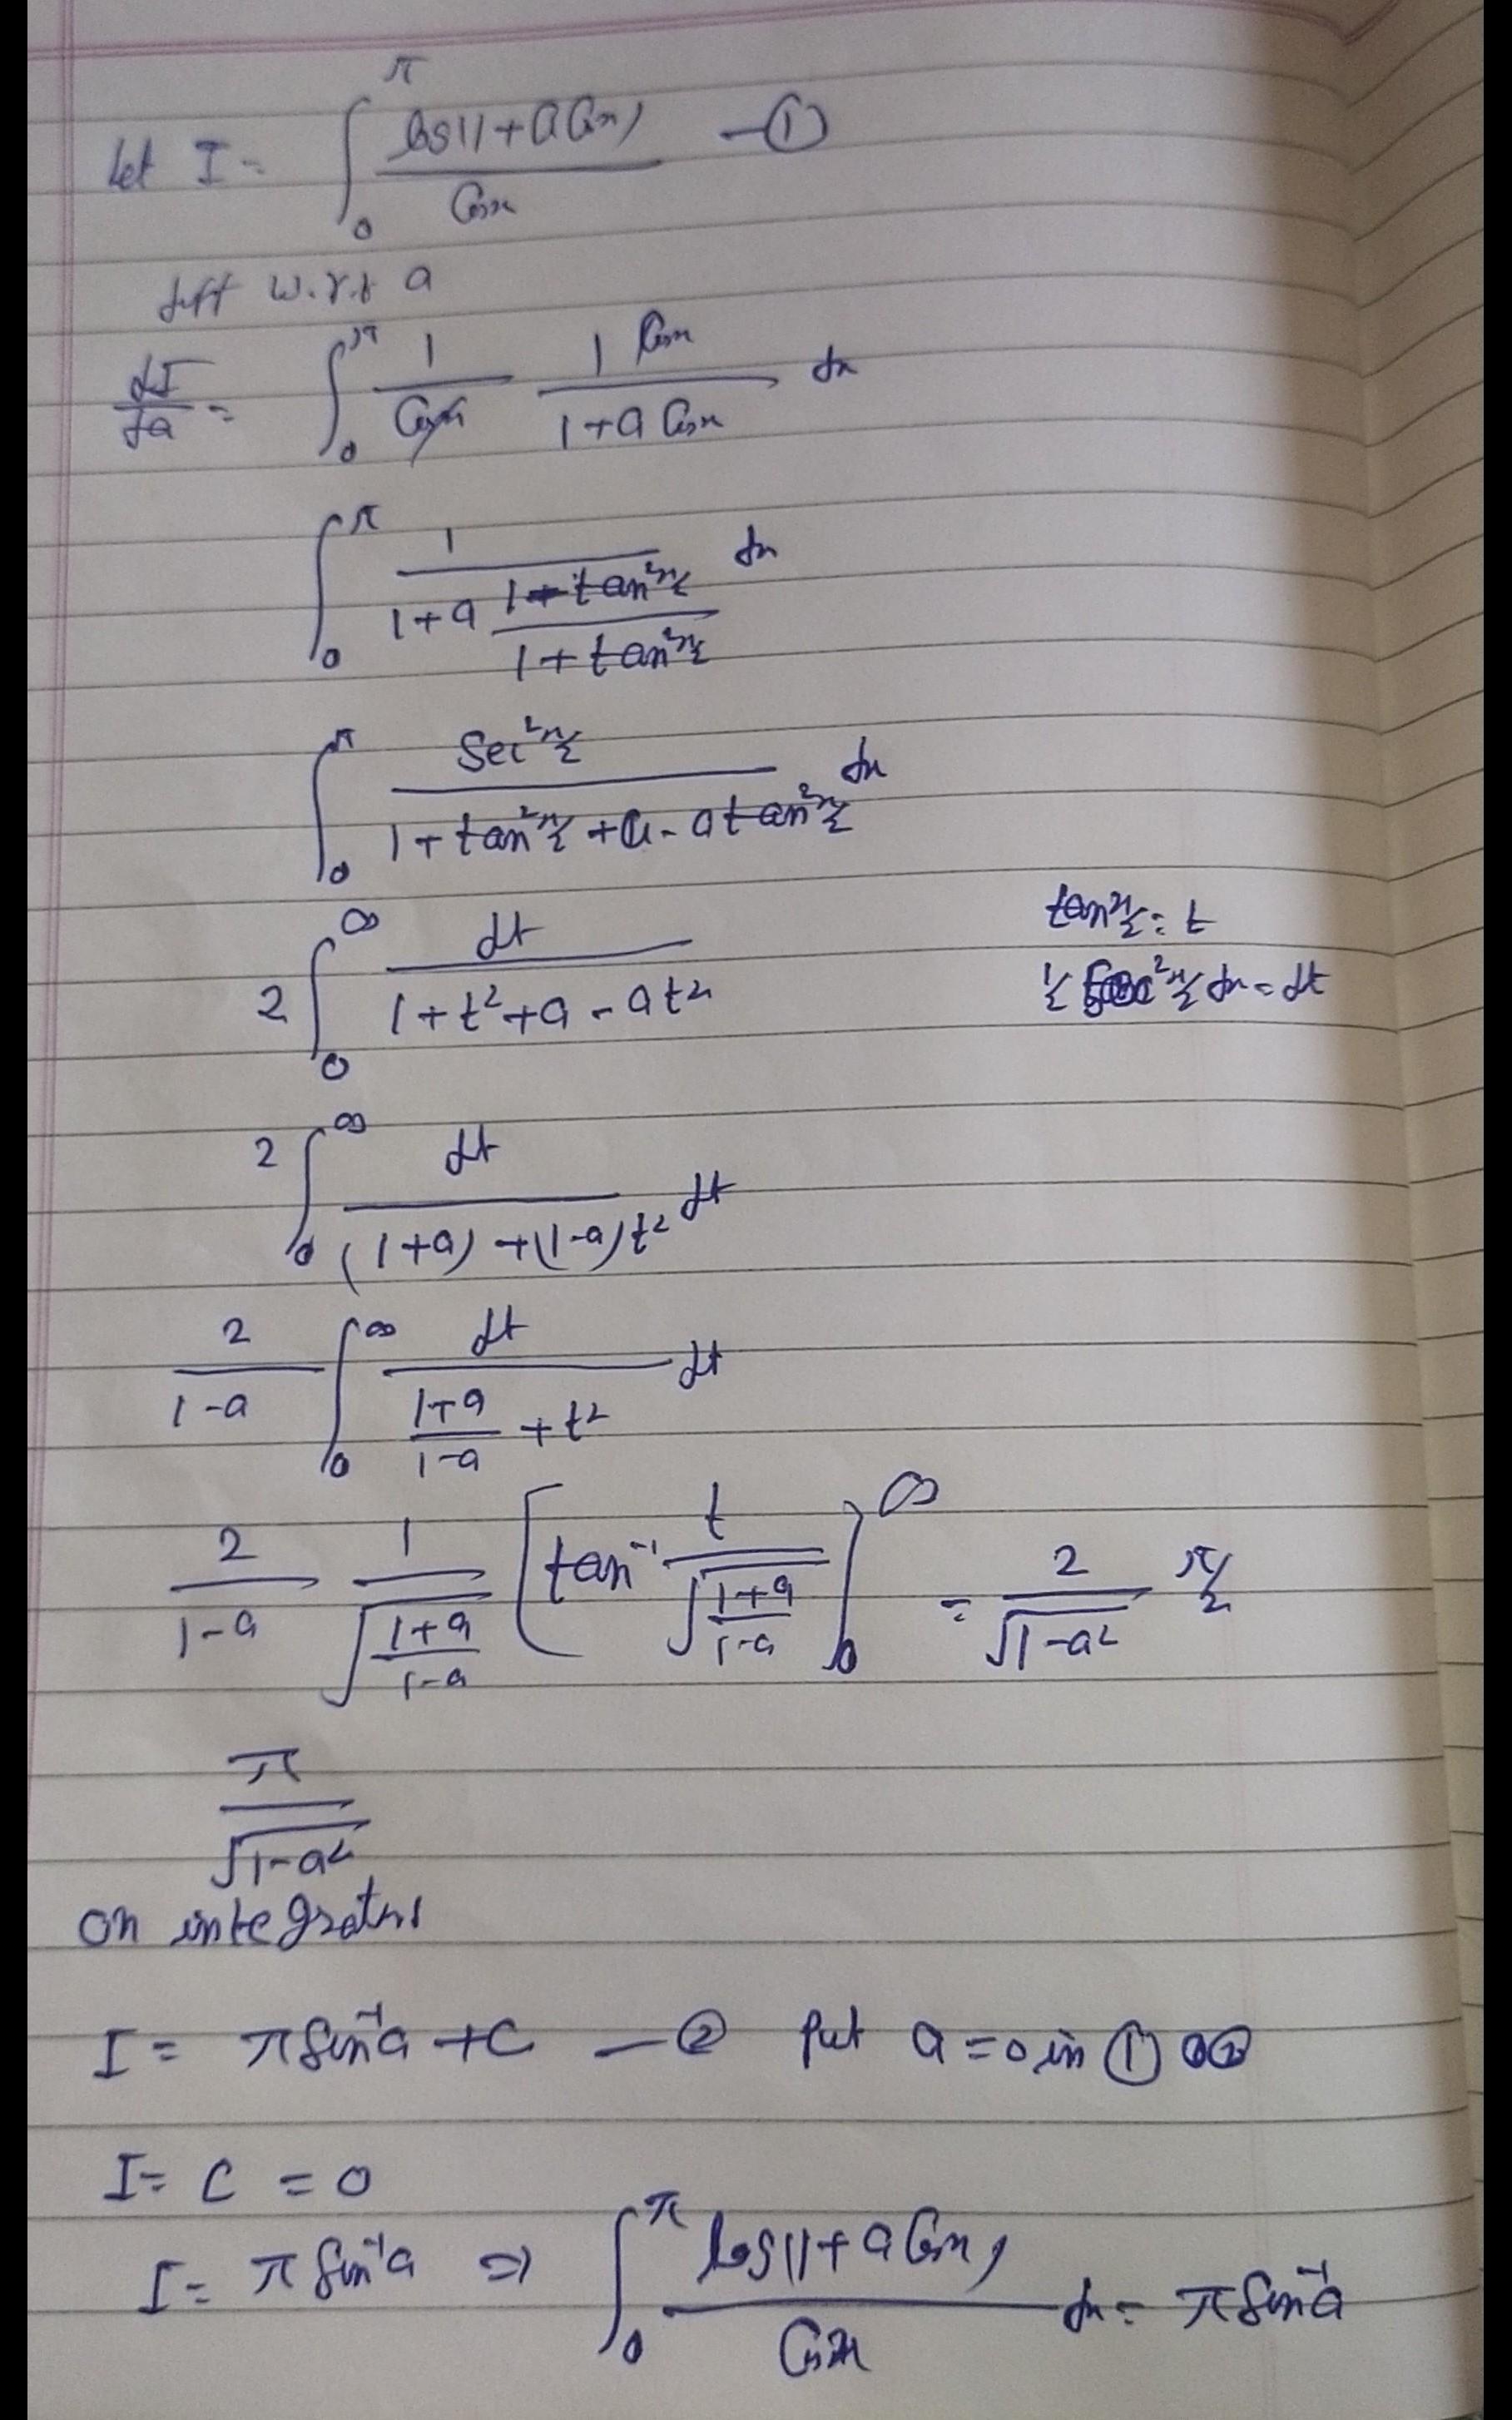 Let I = ∫₀^π log(1+a Cosx)/Cosx —①
diff w.r.t a
dI/da = ∫₀^π 1/Cosx · 1 Cosx/(1+a Cosx) dx
∫₀^π 1/(1+a (1-tan²x/2)/(1+tan²x/2)) dx
∫₀^π Sec²x/2 / (1+tan²x/2+a-a tan²x/2) dx
2 ∫₀^∞ dt/(1+t²+a-at²) tan x/2 = t
½ Sec²x/2 dx = dt
2 ∫₀^∞ dt/((1+a)+(1-a)t²) dt
2/(1-a) ∫₀^∞ dt/((1+a)/(1-a) + t²) dt
2/(1-a) · 1/√((1+a)/(1-a)) [tan⁻¹ t/√((1+a)/(1-a))]₀^∞ = 2/√(1-a²) π/2
π/√(1-a²)
on integrating
I = π Sin⁻¹a + C —② Put a = 0 in ① ②
I = C = 0
I = π Sin⁻¹a ⇒ ∫₀^π log(1+a Cosx)/Cosx dx = π Sin⁻¹a